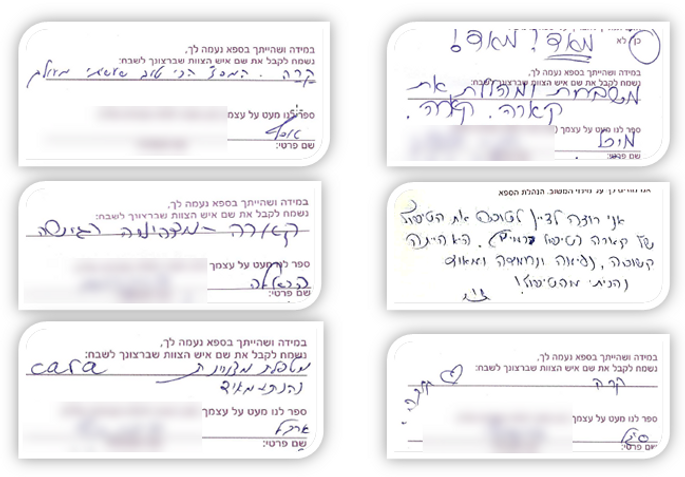 במידה ושהייתך בספא נעמה לך,
נשמח לקבל את שם איש הצוות שברצונך לשבח:
קרה. המסז' הכי טוב שעשיתי מעולם
ספר לנו מעט על עצמך
שם פרטי:
במידה ושהייתך בספא נעמה לך,
נשמח לקבל את שם איש הצוות שברצונך לשבח:
קארה - מדהימה
ספר לנו מעט על עצמך
שם פרטי:
במידה ושהייתך בספא נעמה לך,
נשמח לקבל את שם איש הצוות שברצונך לשבח:
מטפלת מצוינת cara
נהנתי מאוד
ספר לנו מעט על עצמך
שם פרטי:
כן לא
מאד! מאד!
נשמח לקבל את שם איש הצוות שברצונך לשבח:
משבחת ומהללת את
קארה. קארה.
ספר לנו מעט על עצמך
מיכל
שם פרטי:
הנהלת הספא
אני רוצה לציין לטובה את הטיפול
של קארה לטיפול. היא הייתה
קשובה, נפלאה ומאוד
נהניתי מהטיפול!
במידה ושהייתך בספא נעמה לך,
נשמח לקבל את שם איש הצוות שברצונך לשבח:
קרה
ספר לנו מעט על עצמך
שם פרטי: